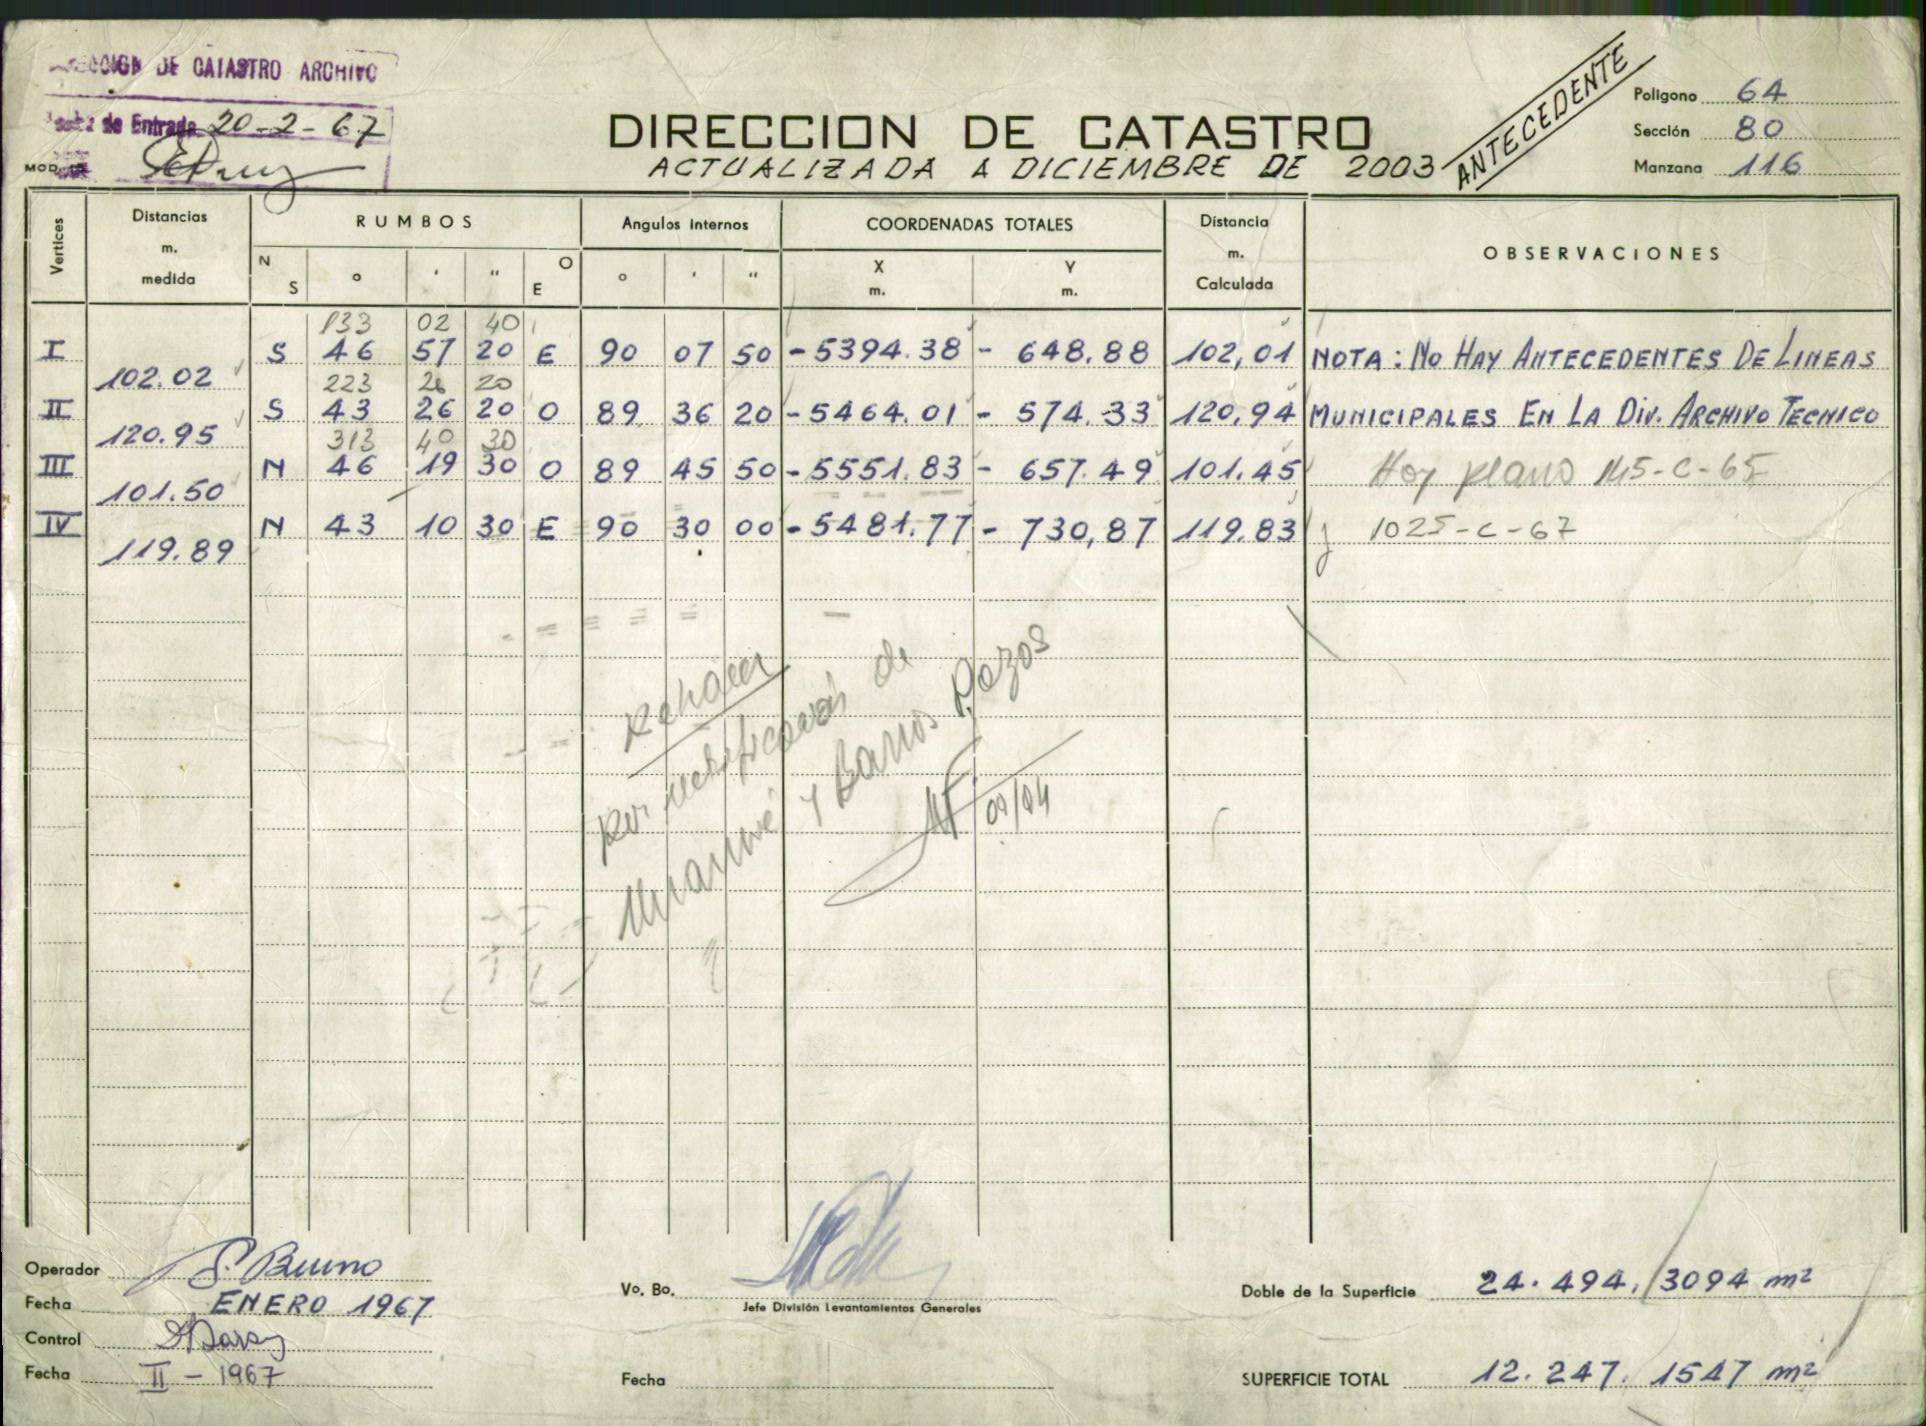 DE CATASTRO ARCHIVO
de Entrada 20-2-67
MOD.
DIRECCION DE CATASTRO
ACTUALIZADA A DICIEMBRE DE 2003
ANTECEDENTE
Poligono 64
Sección 80
Manzana 116
Vertices Distancias m. medida RUMBOS Angulos internos COORDENADAS TOTALES Distancia m. Calculada OBSERVACIONES
N S ° ' " O E ° ' " X m. Y m.
133 02 40
I S 46 57 20 E 90 07 50 -5394.38 - 648.88 102,01 NOTA: NO HAY ANTECEDENTES DE LINEAS
102.02 223 26 20
II S 43 26 20 O 89 36 20 -5464.01 - 574.33 120,94 MUNICIPALES EN LA DIV. ARCHIVO TECNICO
120.95 313 40 30
III N 46 19 30 O 89 45 50 -5551.83 - 657.49 101.45 Hoy plano 145-C-65
101.50
IV N 43 10 30 E 90 30 00 -5481.77 - 730,87 119.83 y 1025-C-67
119.89
Rehacer
por rectificación de
y Barros Pazos
Operador S. Bruno
Fecha ENERO 1967
Control
Fecha II - 1967
Vo. Bo.
Jefe División Levantamientos Generales
Fecha
Doble de la Superficie 24.494,3094 m²
SUPERFICIE TOTAL 12.247.1547 m²